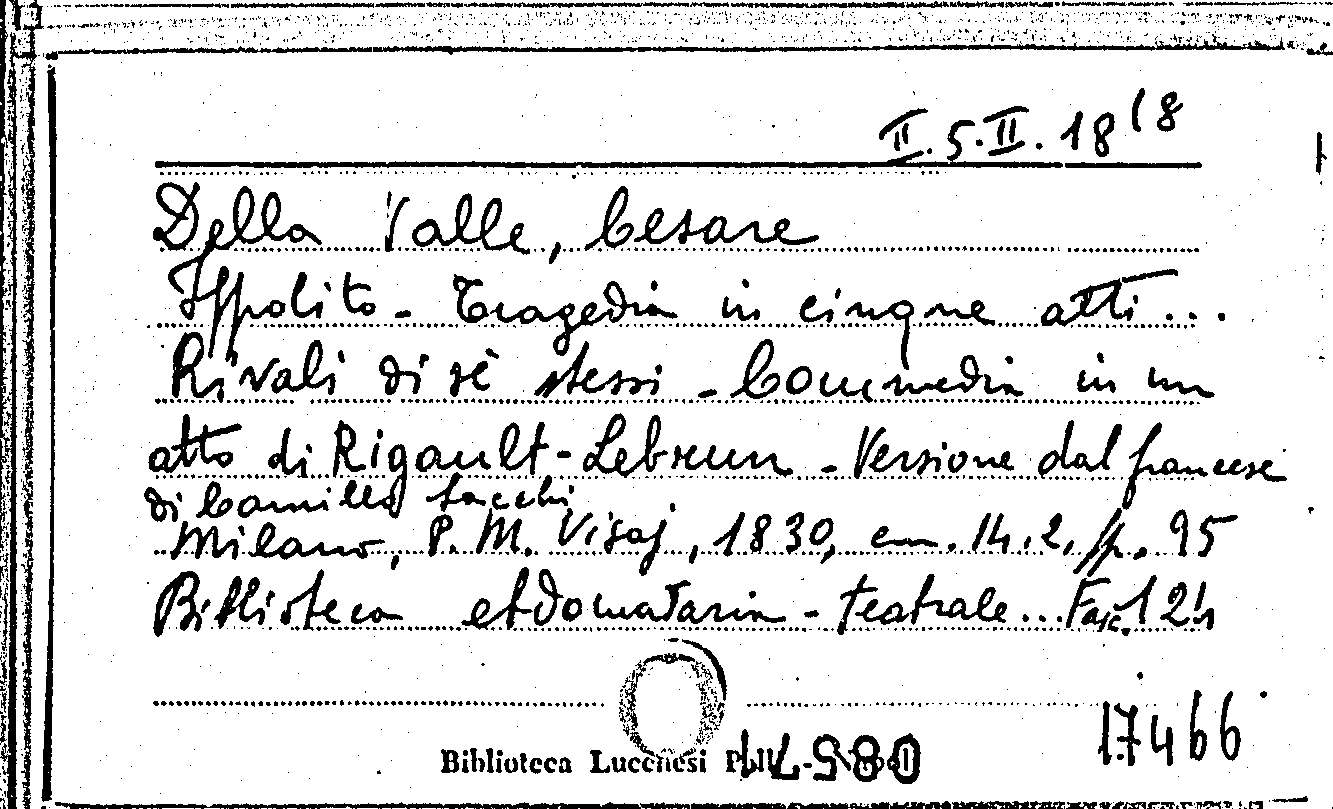 II.5.II.18(8
Della Valle, Cesare
Ippolito - Tragedia in cinque atti...
Rivali di sè stessi - Commedia in un
atto di Rigault-Lebrun - Versione dal francese
di Camillo Sacchi
Milano, P. M. Visaj, 1830, cm. 14.2, pp. 95
Biblioteca ebdomadaria - teatrale... Fasc.
Biblioteca Lucchesi
17466